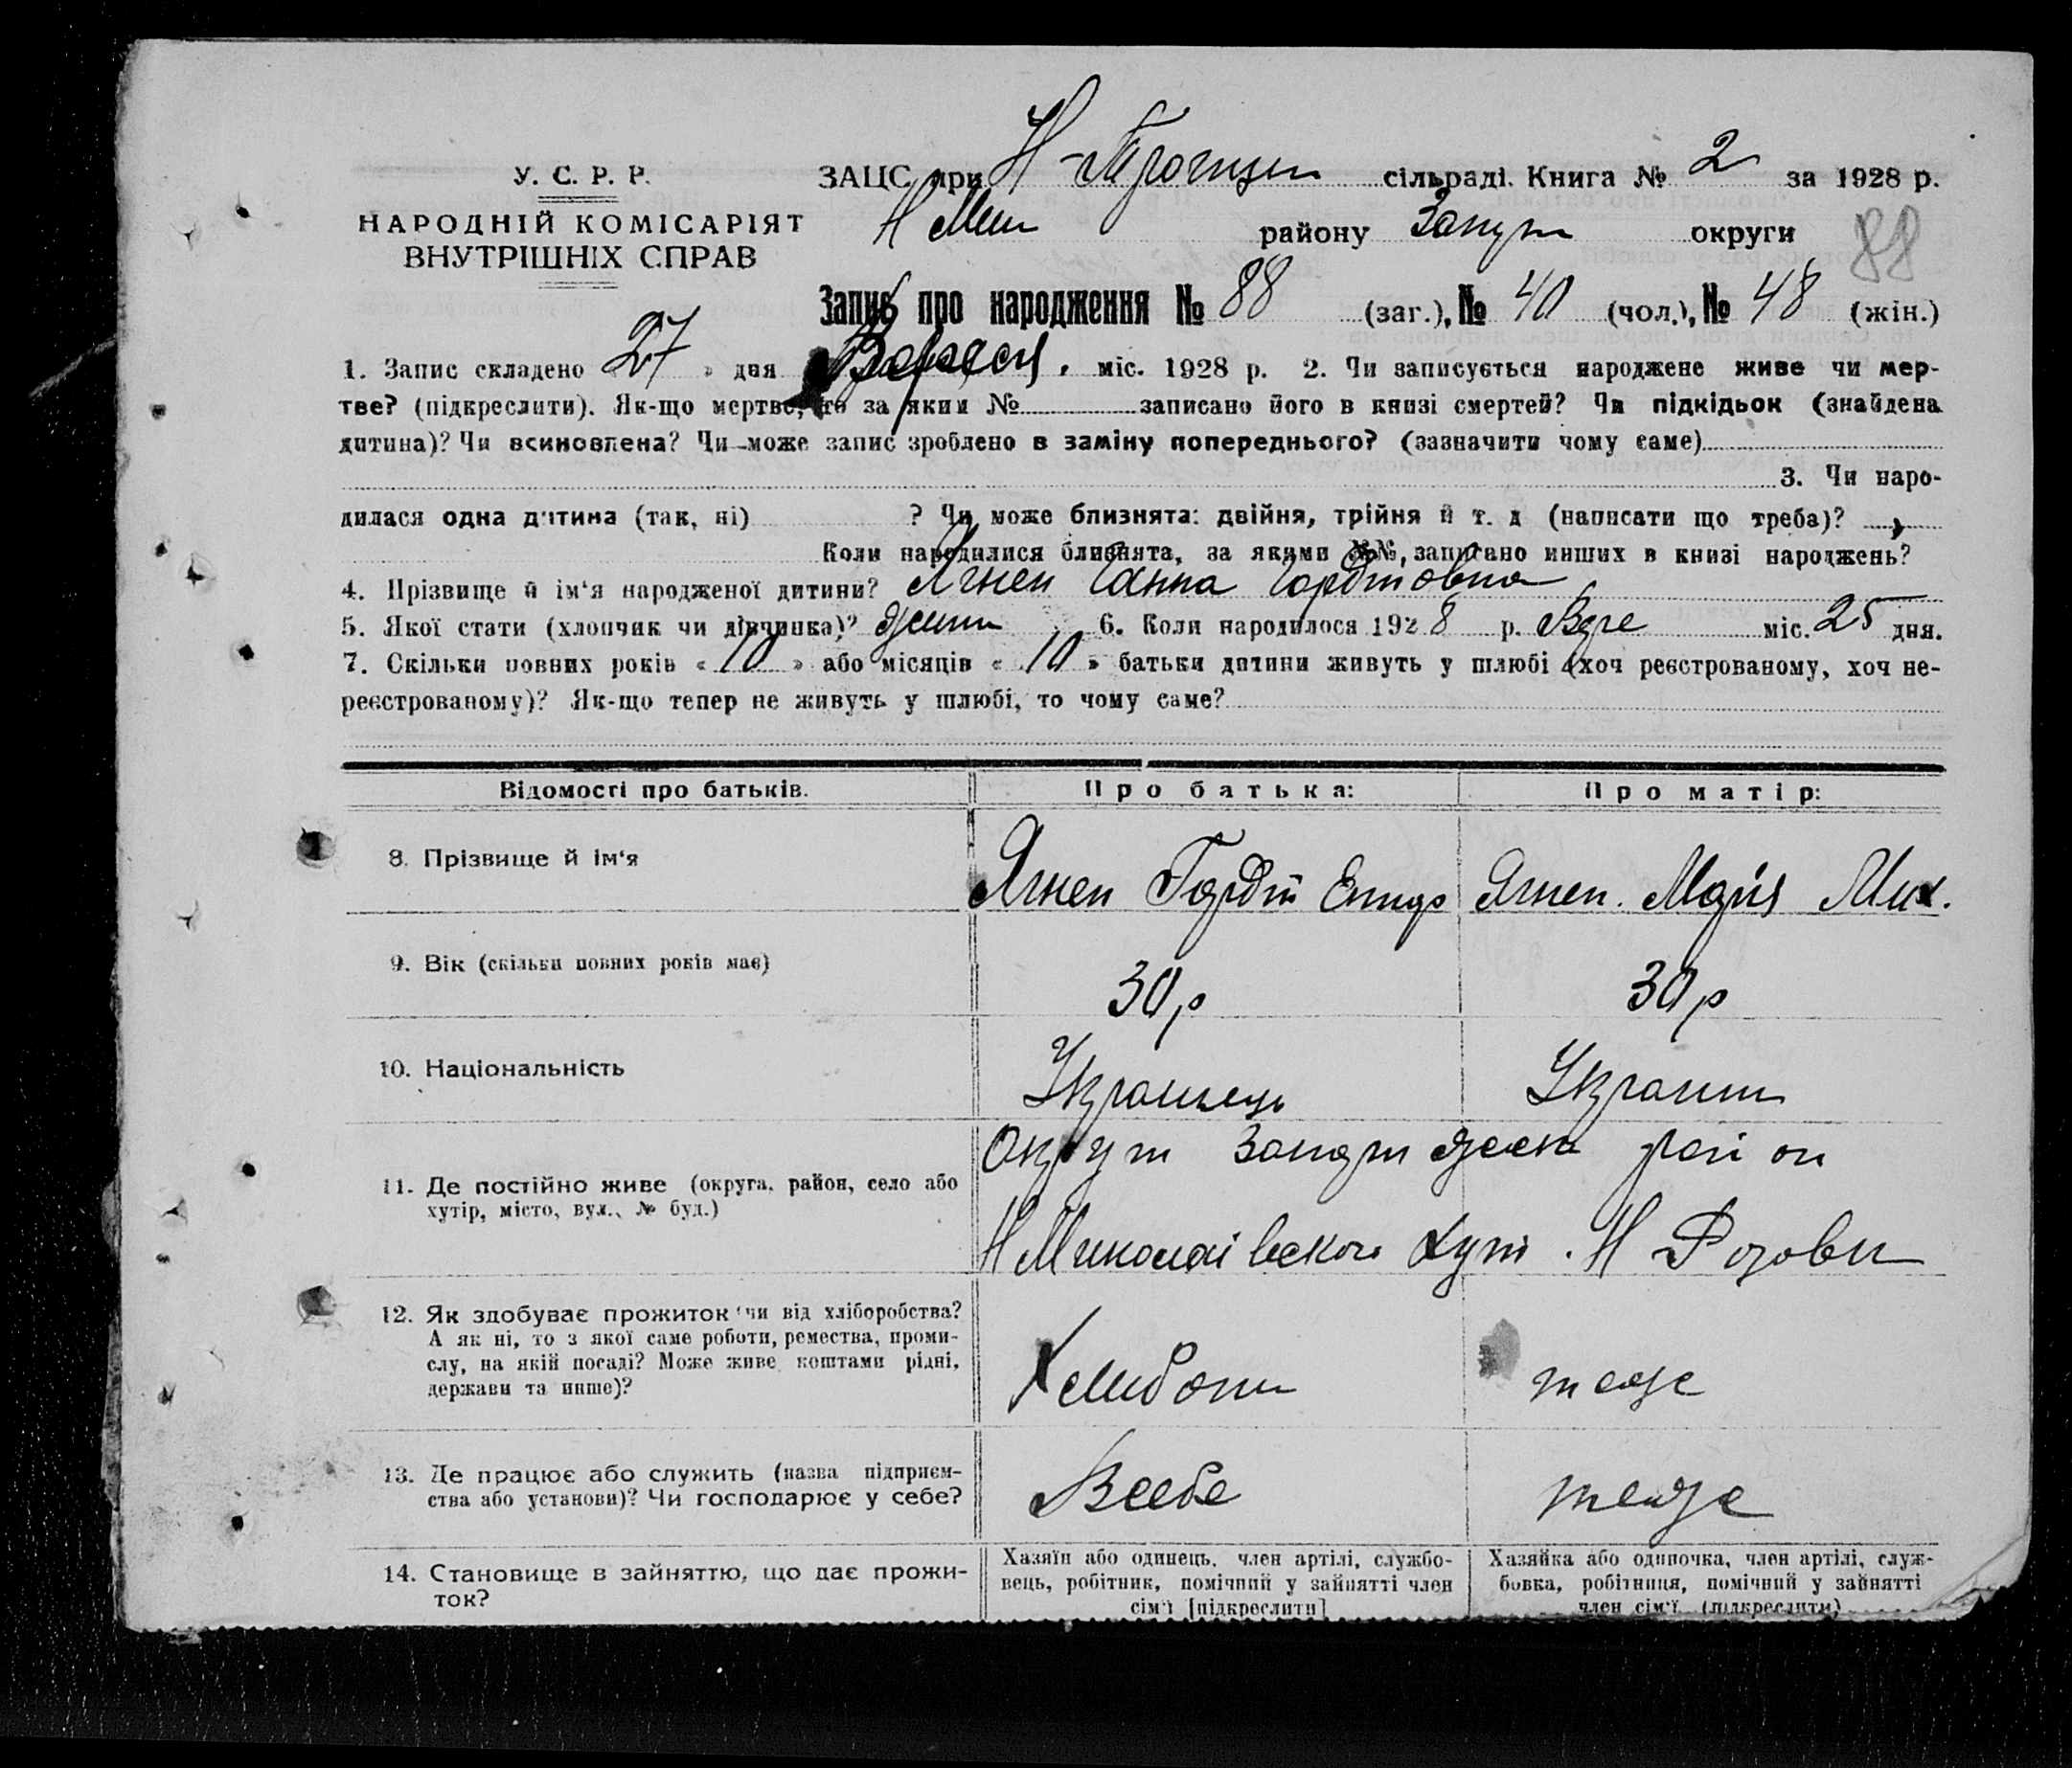 У. С. Р. Р.
НАРОДНІЙ КОМІСАРІЯТ
ВНУТРІШНІХ СПРАВ
ЗАЦС при Н- сільраді. Книга № 2 за 1928 р.
Н Мик району Запор округи
88
Запис про народження № 88 (заг.), № 40 (чол.), № 48 (жін.)
1. Запис складено « 27 » дня Вересня міс. 1928 р. 2. Чи записується народжене живе чи мер-
тве? (підкреслити). Як-що мертве, то за яким № записано його в книзі смертей? Чи підкідьок (знайдена
дитина)? Чи всиновлена? Чи може запис зроблено в заміну попереднього? (зазначити чому саме)
3. Чи наро-
дилася одна дитина (так, ні) ? Чи може близнята: двійня, трійня й т. д (написати що треба)?
Коли народилися близнята, за якими №№, записано инших в книзі народжень?
4. Прізвище й ім'я народженої дитини? Ягнен Ганна Гордіїовна
5. Якої стати (хлопчик чи дівчинка)? жінки 6. Коли народилося 1928 р. Вере міс. 25 дня.
7. Скільки повних років « 10 » або місяців « 10 » батьки дитини живуть у шлюбі (хоч реєстрованому, хоч не-
реєстрованому)? Як-що тепер не живуть у шлюбі, то чому саме?
Відомості про батьків. Про батька: Про матір:
8. Прізвище й ім'я Ягнен Гордій Ягнен. Марія Мих.
9. Вік (скільки повних років має) 30 р 30 р
10. Національність Українець Україн
11. Де постійно живе (округа, район, село або
хутір, місто, вул., № буд.)
Округи район
Н Миколаівского Хут. Н
12. Як здобуває прожиток (чи від хліборобства?
А як ні, то з якої саме роботи, ремества, проми-
слу, на якій посаді? Може живе коштами рідні,
держави та инше)?
теже
13. Де працює або служить (назва підприєм-
ства або установи)? Чи господарює у себе?
Всебе теже
14. Становище в зайняттю, що дає прожи-
ток?
Хазяїн або одинець, член артілі, службо-
вець, робітник, помічний у зайнятті член
сім'ї [підкреслити]
Хазяйка або одиночка, член артілі, служ-
бовка, робітниця, помічний у зайнятті
член сім'ї (підкреслити)